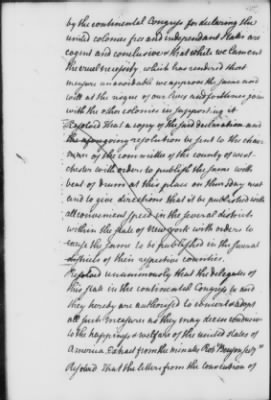 by the continental Congress for declaring the
united colonies free and independant states are
cogent and conclusive & that while we lament
the cruel necessity which has rendered that
measure unavoidable we approve the same and
will at the risque of our lives and fortunes join
with the other colonies in supporting it
Resolved that a copy of the said declaration and
the aforegoing resolution be sent to the chair
man of the committee of the county of west-
chester with orders to publish the same with
beat of drum at this place on thursday next
and to give directions that it be published with
all convenient speed in the several districts
within the state of New York with orders to
cause the same to be published in the several
districts of their respective counties.
Resolved unanimously that the delegates of
this state in the continental Congress be and
they hereby are authorised to concert & adopt
all such measures as they may deem conducive
to the happiness & welfare of the united states of
America. Extract from the minutes Robt Benson secy
Resolved that the letters from the convention of